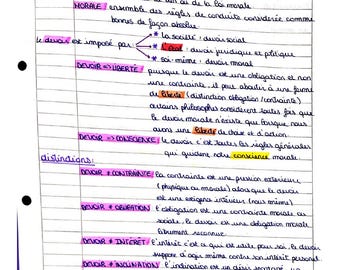 de la loi morale
MORALE : ensemble des règles de conduite considérée comme
bonus de façon absolue.
* la société : devoir social
le devoir est imposé par * L'état : devoir juridique et politique
* soi-même : devoir moral
DEVOIR => LIBERTÉ puisque le devoir est une obligation et non
une contrainte, il peut aboutir à une forme
de liberté (distinction obligation/contrainte)
certains philosophes considèrent toutes fois que
le devoir morale n'existe que lorsque nous
avons une liberté de choix et d'action
DEVOIR => CONSCIENCE : le devoir c'est toutes les règles générales
qui guident notre conscience morale.
distinctions :
DEVOIR ≠ CONTRAINTE la contrainte est une pression extérieure
(physique ou morale) alors que le devoir
est une exigence intérieure (nous même)
DEVOIR ≠ OBLIGATION l'obligation est une contrainte morale ou
sociale. le devoir est une obligation morale
librement reconnue.
DEVOIR ≠ INTÉRÊT l'intérêt c'est ce qui est utile pour soi. le devoir
suppose d'agir même contre son intérêt personnel.
DEVOIR ≠ INCLINATION l'inclination est un désir